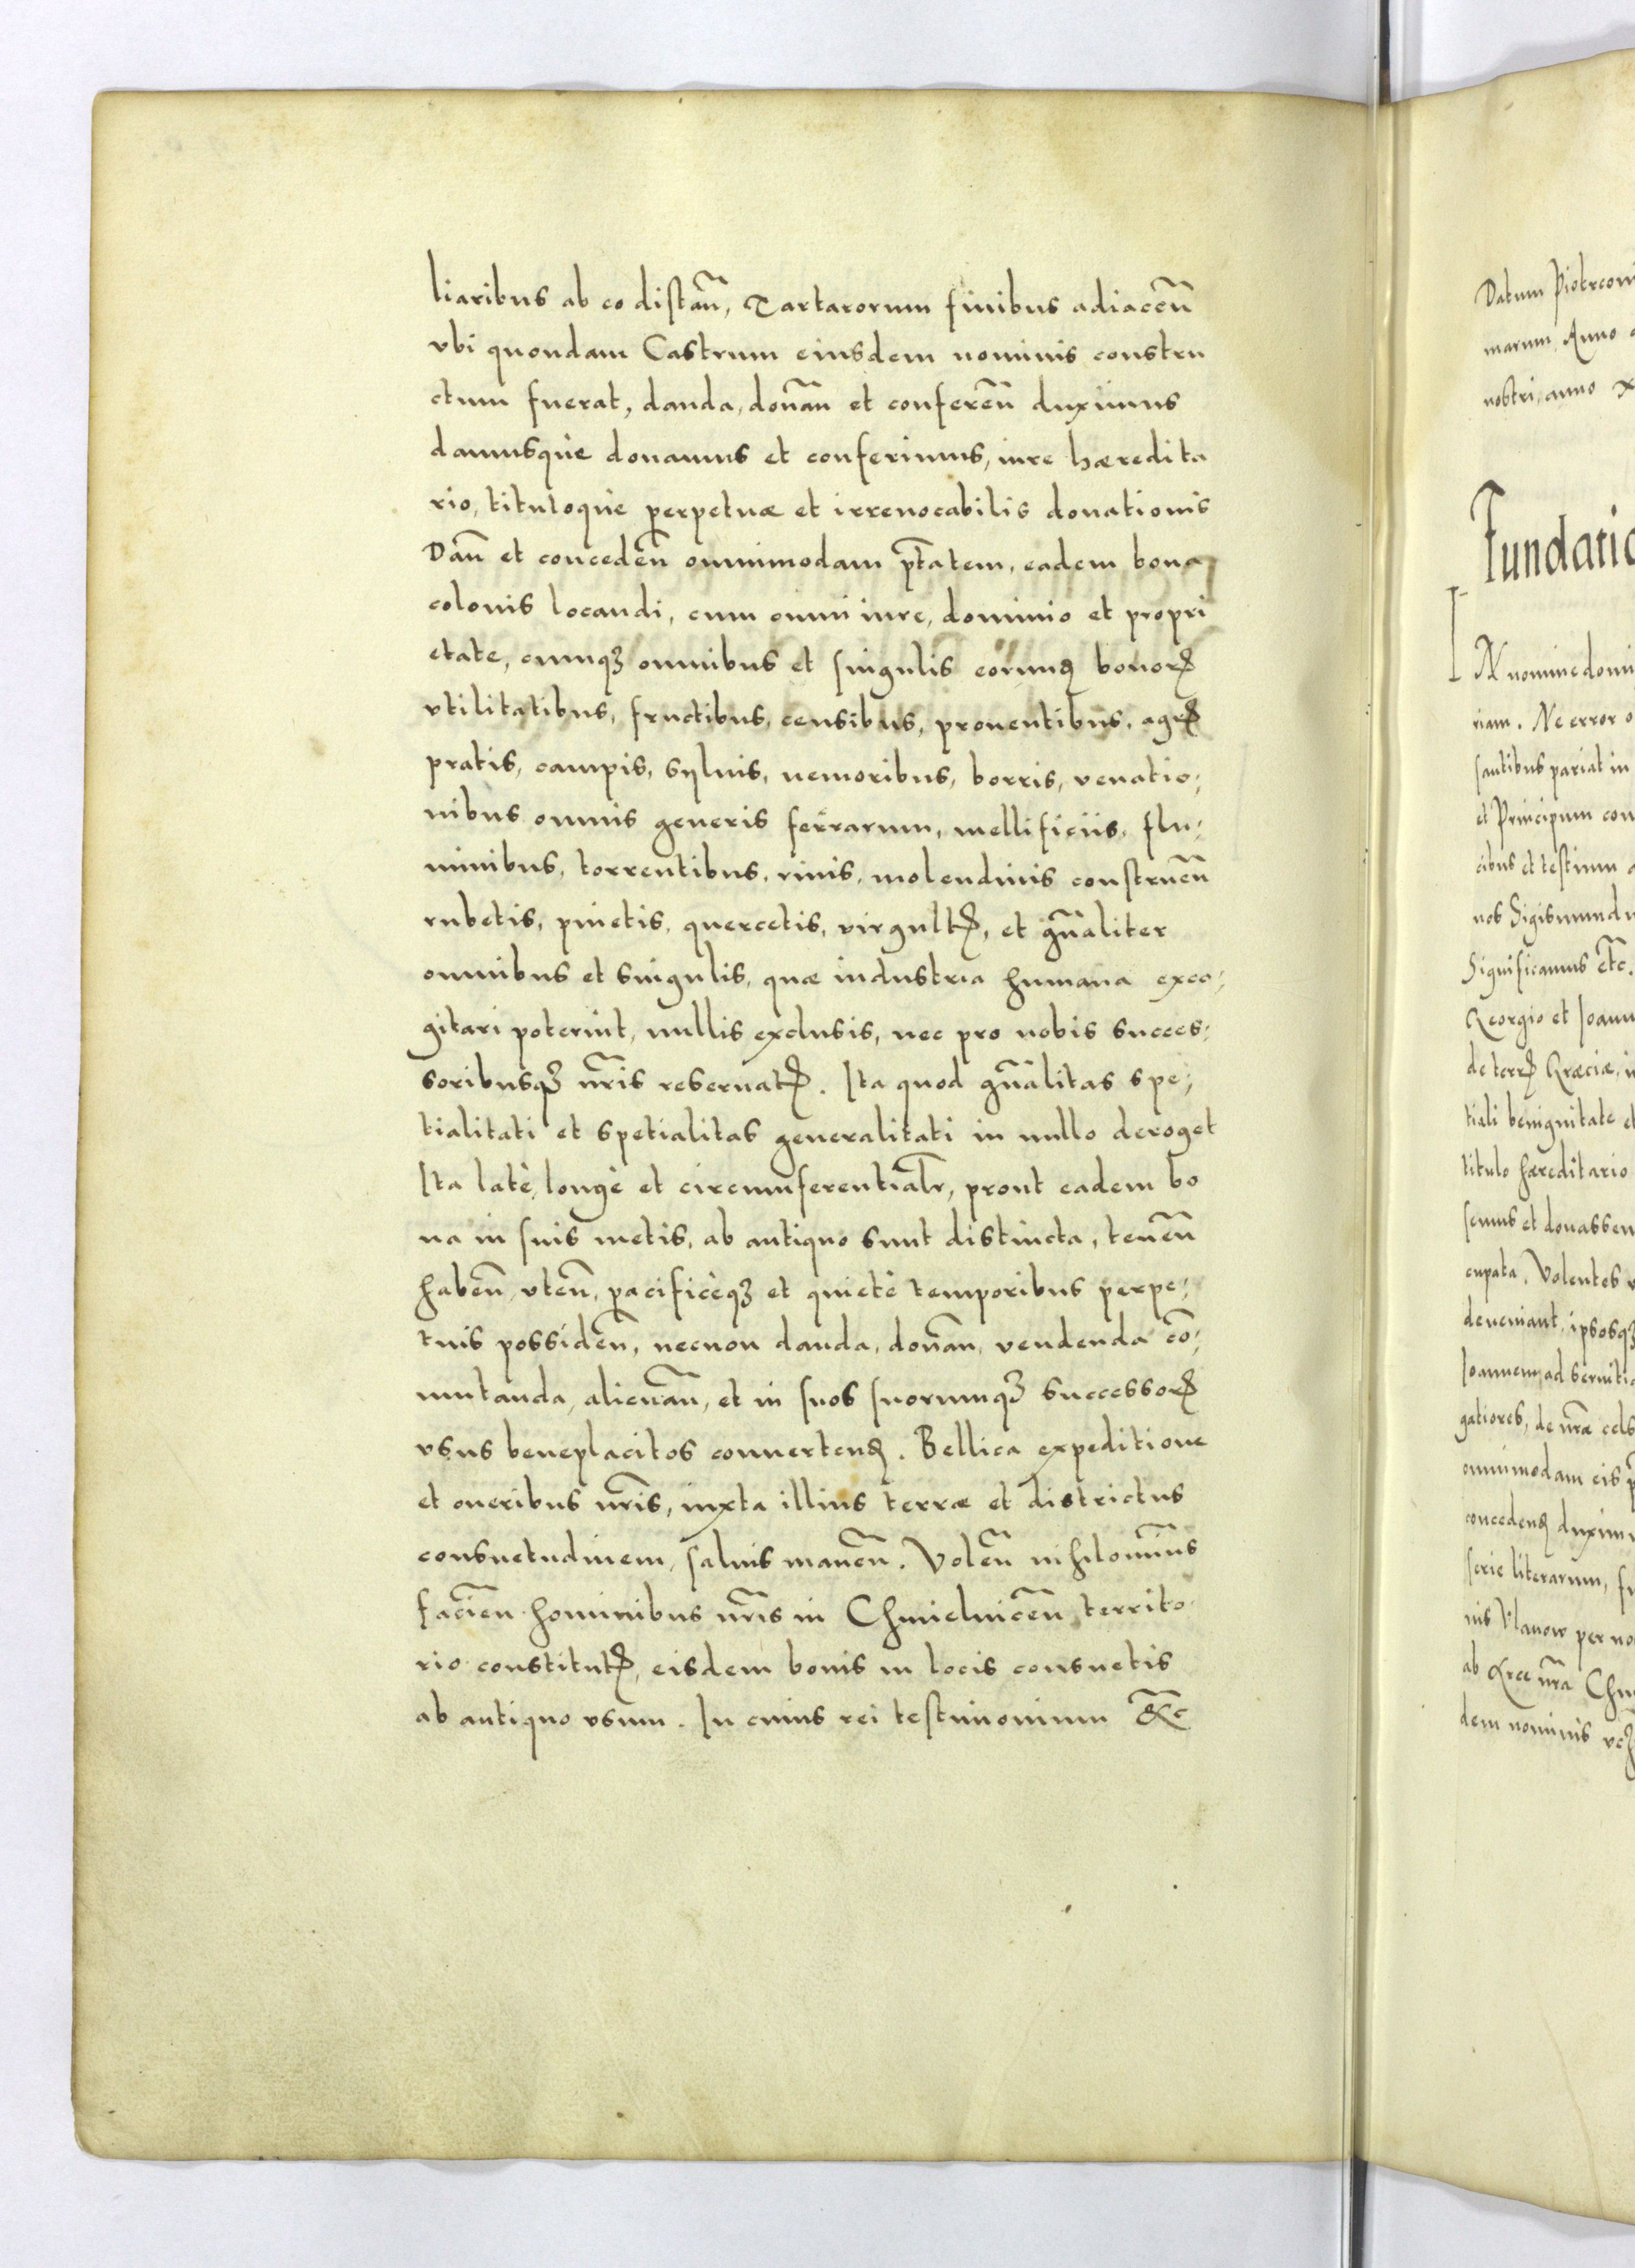 liaribus ab eo distañ, Tartarorum finibus adiaceñ
vbi quondam Castrum eiusdem nominis constru
ctum fuerat, danda, donañ et confereñ duximus
damusquè donamus et conferimus, iure hæredita
rio, tituloquè perpetuæ et irreuocabilis donationis
Dañ et concedeñ omnimodam ptãtem, eadem bona
colonis locandi, cum omni iure, dominio et propri
etate, cumqꝫ omnibus et singulis eorundꝫ bonorꝝ
vtilitatibus, fructibus, censibus, prouentibus, agrꝝ
pratis, campis, syluis, nemoribus, borris, venatio,
nibus omnis generis ferrarum, mellificiis, flu,
minibus, torrentibus, riuis, molendinis construeñ
rubetis, pinetis, quercetis, virgultꝝ, et gñaliter
omnibus et singulis, quæ industria humana exco,
gitari poterint, nullis exclusis, nec pro nobis succes,
soribusqꝫ nr̃is reseruatꝝ. Ita quod gñalitas spe,
tialitati et spetialitas generalitati in nullo deroget
Ita latè, longè et circumferentialr̃, prout eadem bo
na in suis metis, ab antiquo sunt distincta, teneñ
habeñ, vteñ, pacificèqꝫ et quietè temporibus perpe,
tuis possideñ, necnon danda, donañ, vendenda cõ,
mutanda, alienañ, et in suos suorumqꝫ successorꝝ
vsus beneplacitos conuertendꝫ. Bellica expeditione
et oneribus nr̃is, iuxta illius terræ et districtus
consuetudinem, saluis maneñ. Voleñ nihilomĩnus
facieñ hominibus nr̃is in Chmielniceñ territo
rio constitutꝝ, eisdem bonis in locis consuetis
ab antiquo vsum. In cuius rei testimonium &c̃
Datum Piotrcoui
marum, Anno
nostri, anno
Fundatio
IN nomine domi
riam. Ne error o
santibus pariat in
et Principum con
cibus et testium
nos Sigismundu
Significamus etc̃.
Georgio et Ioann
de terrꝝ Græciæ, i
tiali benignitate et
titulo hæreditario
semus et donassem
cupata. Volentes
deueniant, ipsosqꝫ
Ioannem, ad seruitia
gatiores, de nr̃a cels
omnimodam eis
concedendꝫ duximu
serie literarum, fu
nis Vlanow per no
ab Arce nr̃a Chm
dem nominis